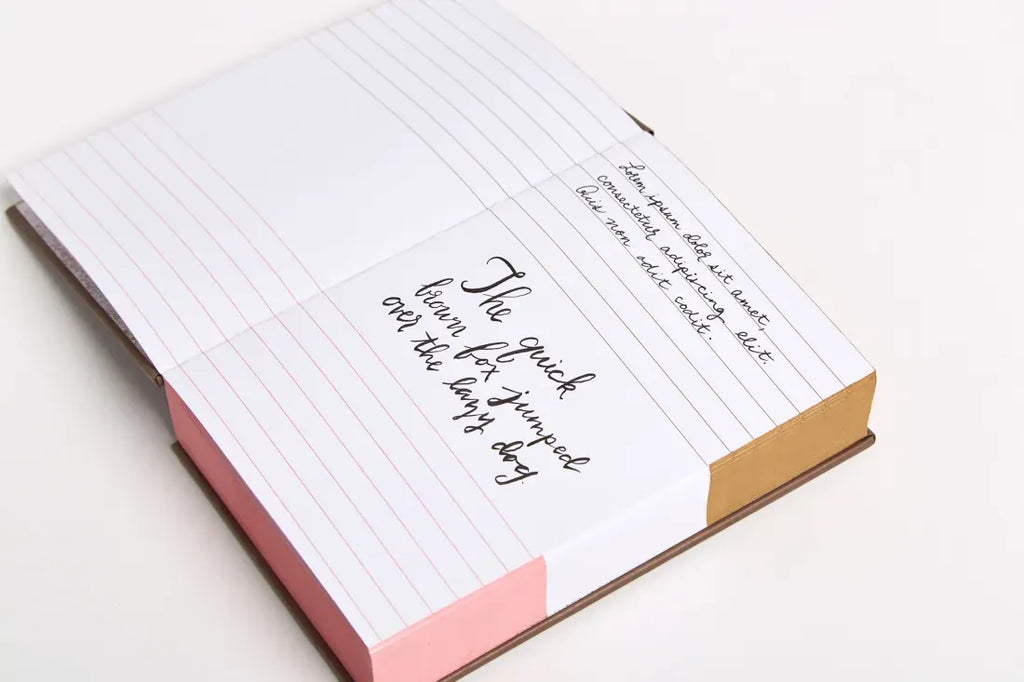 Lorem ipsum dolor sit amet,
consectetur adipiscing elit.
Quis non odit codit.
The quick
brown fox jumped
over the lazy dog.